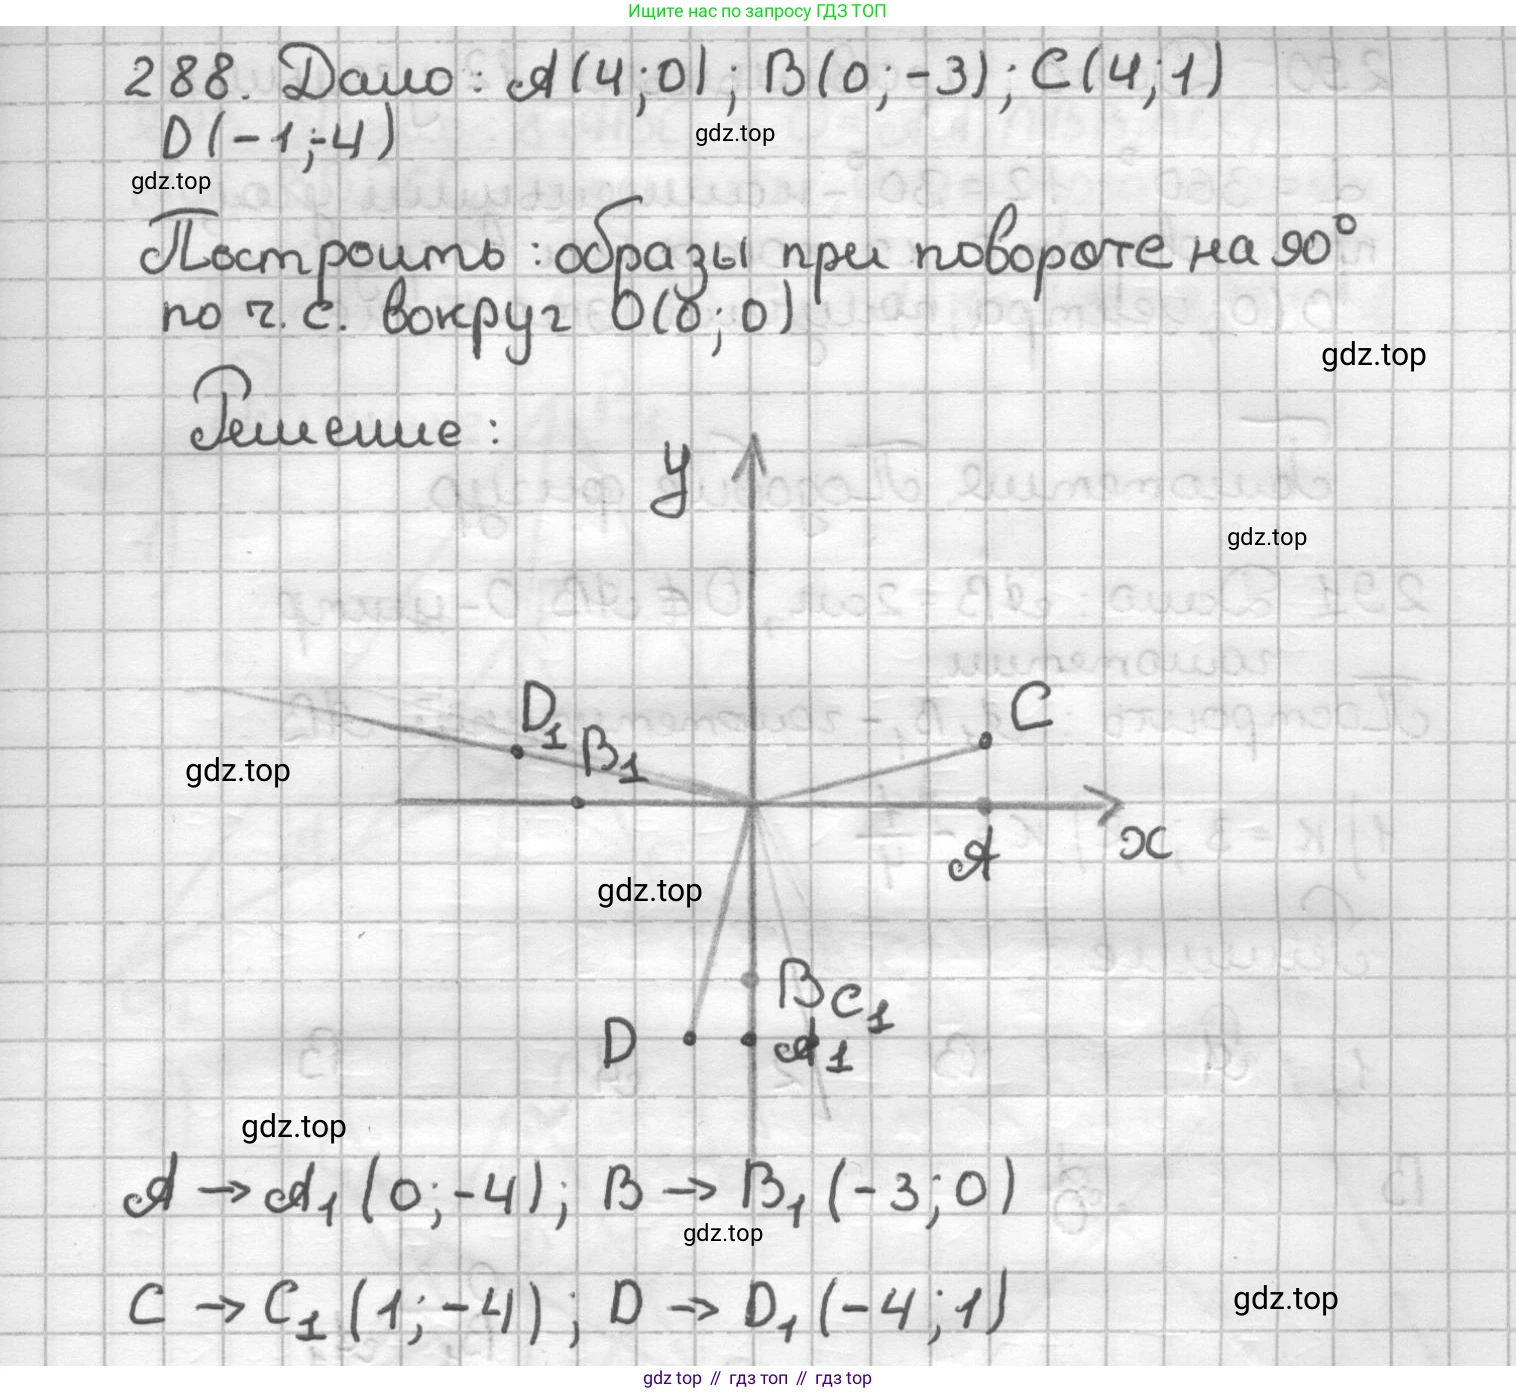 Ищите нас по запросу ГДЗ ТОП
288. Дано: A(4;0); B(0;-3); C(4;1)
D(-1;-4)
gdz.top
gdz.top
Построить: образы при повороте на 90°
по ч.с. вокруг O(0;0)
gdz.top
Решение:
y
gdz.top
D₁
C
B₁
gdz.top
x
A
gdz.top
B
C₁
D
A₁
gdz.top
A → A₁ (0;-4); B → B₁ (-3;0)
gdz.top
C → C₁ (1;-4); D → D₁ (-4;1)
gdz.top
gdz top // гдз топ // гдз top